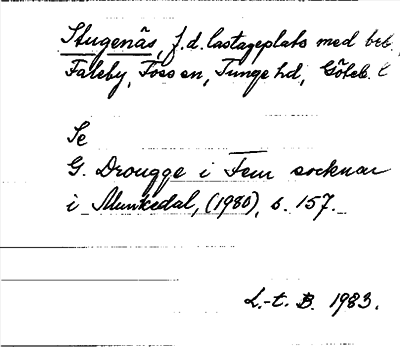 Stugenäs, f.d. lastageplats med beb.,
Faleby, Foss sn, Tunge hd, Göteb. l
Se
G. Drougge i Fem socknar
i Munkedal, (1980), s. 157.
L.-t. B. 1983.